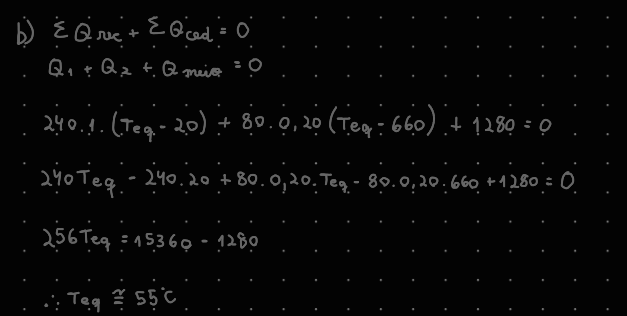 b) Σ Q rec + Σ Q ced = 0
Q1 + Q2 + Q meio = 0
240.1.(Teq - 20) + 80.0,20(Teq - 660) + 1280 = 0
240Teq - 240.20 + 80.0,20.Teq - 80.0,20.660 + 1280 = 0
256Teq = 15360 - 1280
∴ Teq ≅ 55°C